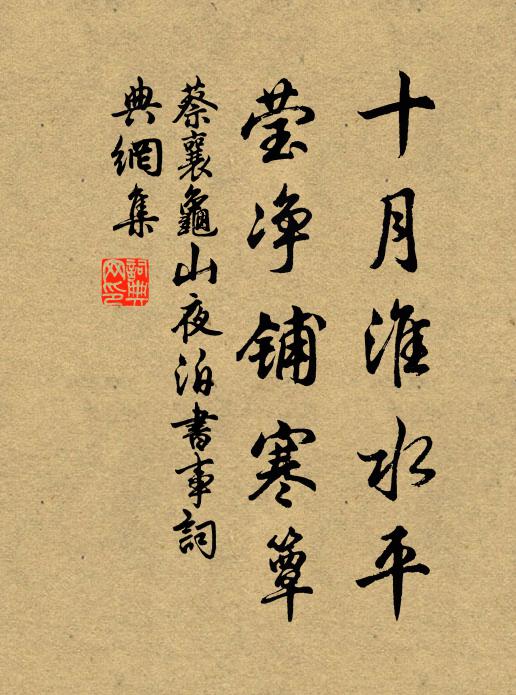 十月淮水平
莹净铺寒簟
蔡襄龜山夜泊書事詞
典網集
詞典
网印